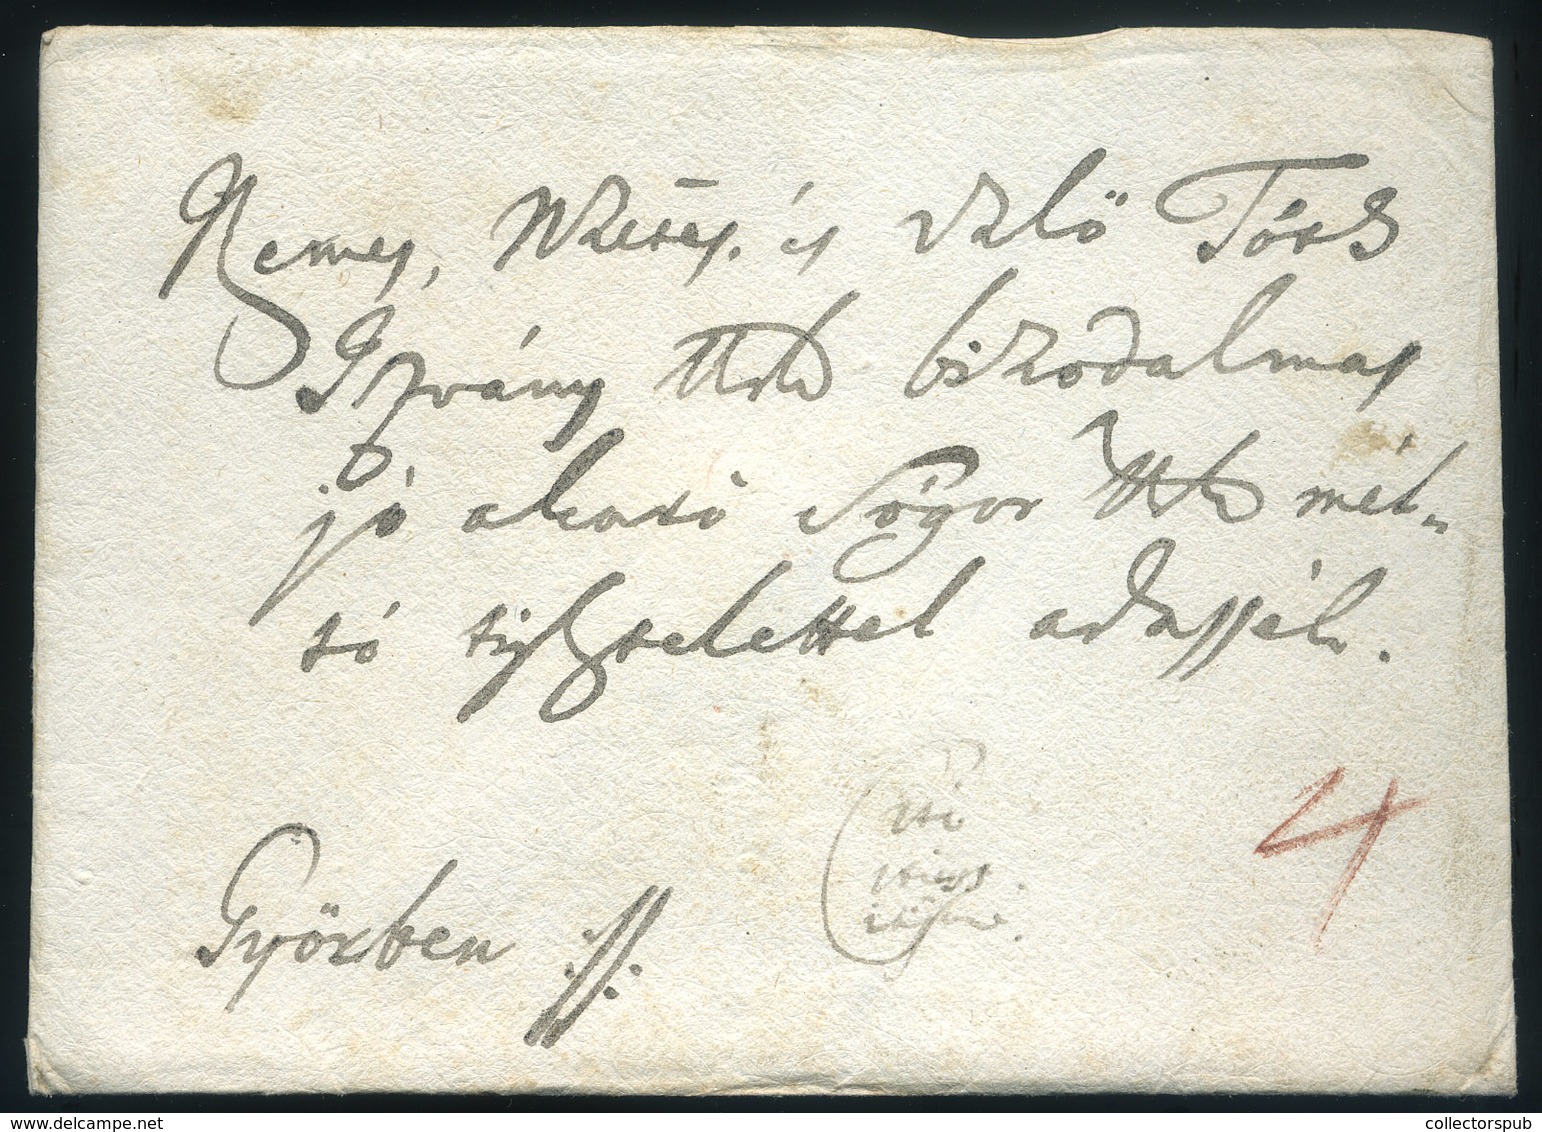 Nemes, Nzetes, és vzló Tóth
Istvány Urk bizodalmas
jó akaró Sógor Urk mél„
tó tisztelettel adassék.
Győrben
4
www.delcampe.net
collectorspub